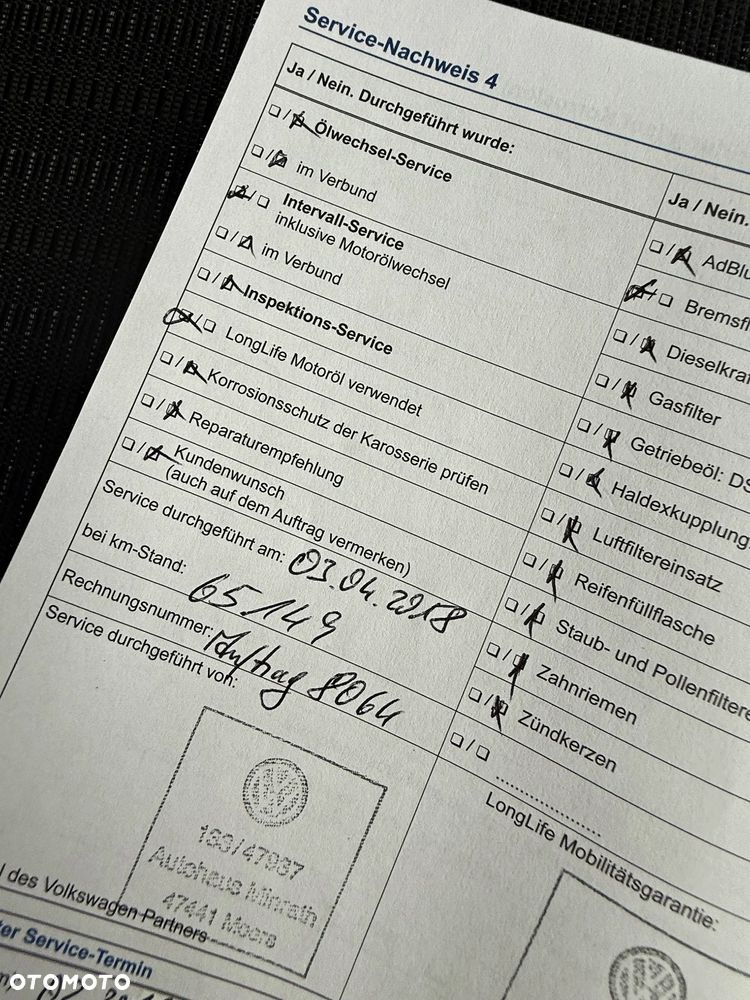 Service-Nachweis 4
Ja / Nein. Durchgeführt wurde:
Ölwechsel-Service
im Verbund
Intervall-Service
inklusive Motorölwechsel
im Verbund
Inspektions-Service
LongLife Motoröl verwendet
Korrosionsschutz der Karosserie prüfen
Reparaturempfehlung
Kundenwunsch
(auch auf dem Auftrag vermerken)
Service durchgeführt am: 03.04.2018
bei km-Stand: 65.149
Rechnungsnummer: Auftrag 8064
Service durchgeführt von:
VW
183/47937
Autohaus Minrath
47441 Moers
des Volkswagen Partners
ter Service-Termin
Ja / Nein.
AdBlu
Bremsfl
Dieselkraf
Gasfilter
Getriebeöl: DS
Haldexkupplung
Luftfiltereinsatz
Reifenfüllflasche
Staub- und Pollenfiltere
Zahnriemen
Zündkerzen
LongLife Mobilitätsgarantie:
OTOMOTO